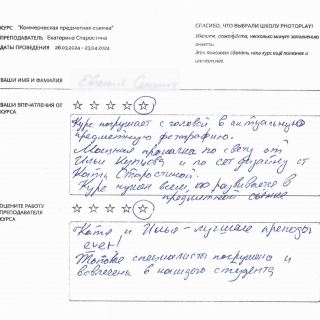 КУРС "Коммерческая предметная съемка"
ПРЕПОДАВАТЕЛЬ Екатерина Старостина
ДАТЫ ПРОВЕДЕНИЯ 26.03.2024 - 23.04.2024
СПАСИБО, ЧТО ВЫБРАЛИ ШКОЛУ PHOTOPLAY!
Уделите, пожалуйста, несколько минут заполнению анкеты.
Это поможет сделать наш курс ещё полезнее и интереснее.
ВАШИ ИМЯ И ФАМИЛИЯ
ВАШИ ВПЕЧАТЛЕНИЯ ОТ КУРСА
Курс погружает с головой в актуальную
предметную фотографию.
Мощная прокачка по свету от
Ильи Купцова и по сет-дизайну от
Кати Старостиной.
Курс нужен всем, кто развивается в
предметной съёмке
ОЦЕНИТЕ РАБОТУ ПРЕПОДАВАТЕЛЯ КУРСА
Катя и Илья - лучшие преподы
ever!
Топовые специалисты погружены и
вовлечены в каждого студента